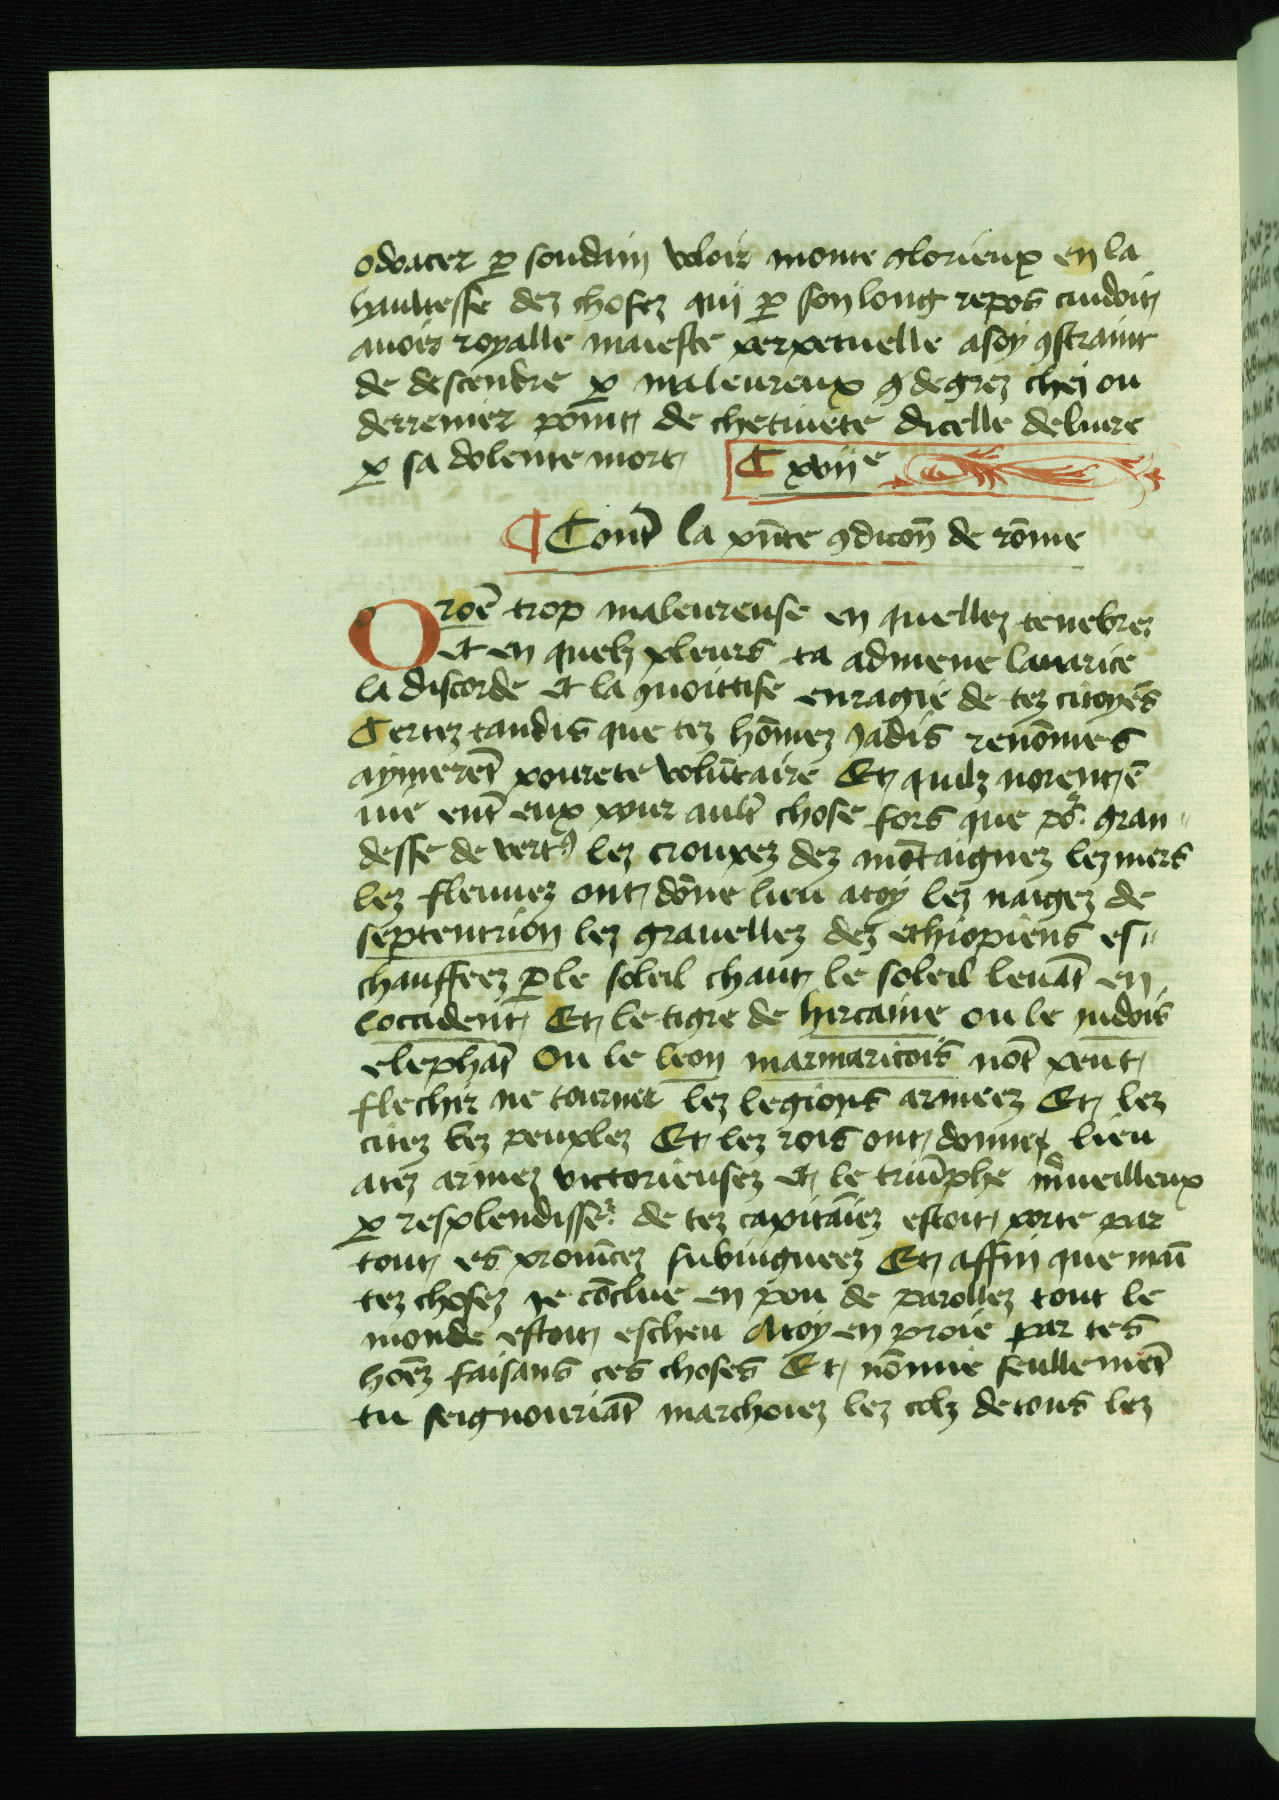 odoacer ꝑ soudain voloir monte glorieux en la
haultesse dez chosez qui ꝑ son long repos cuidoit
auoir royalle maieste perpetuelle a soy ꝯstraint
de descendre ꝑ maleureux ꝯ degrez chei ou
derrenier point de chetiuete dicelle deliure
ꝑ sa dolente mort C xviie
¶ Cont̃ la p̃nte ꝯdicoñ de rõme
O roẽ trop maleureuse en quellez tenebrez
et en quelz pleurs ta admene lauarice
la discorde et la ꝯuoitise enragie de tez citoyẽs
Certez tandis que tez hõmez jadis renõmes
aymerẽt pourete volũtaire Et quilz norent ẽ
uie ent̃ eux pour ault̃ chose fors que po᷑ gran
desse de vertꝰ lez crouppez dez mõtaignez lez mers
lez fleuuez ont dõne lieu a toy lez naigez de
septentrion lez grauellez dez ethiopiens es
chauffeez ꝑ le soleil chaut le soleil leuãt en
loccident Et le tigre de hircanie ou le indois
elephãt Ou le leon marmaricois nõt peut
flechir ne tourner lez legions armeez Et lez
citez lez peuplez Et lez rois ont donne lieu
a tez armez victorieusez et le triũphe m̃ueilleux
ꝑ resplendisse᷑ de tez capitãiez estoit porte par
tout es prouĩcez subiugueez Et affin que maĩ
tez chosez je cõclue en pou de parollez tout le
monde estoit escheu a toy en proie par tes
hoẽz faisans ces choses Et nõmie seullemẽt
tu seignouriãt marchoiez lez colz de tous lez